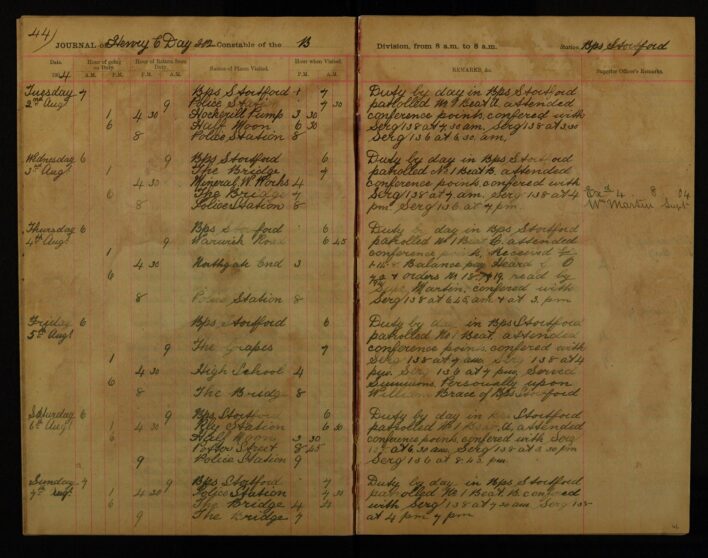 44)
JOURNAL of Henry C Day 212 Constable of the B Division, from 8 a.m. to 8 a.m. Station, Bps Stortford
Date. Hour of going on Duty. Hour of Return from Duty. Names of Places Visited. Hour when Visited. REMARKS, &c. Superior Officer's Remarks.
1904 A.M. P.M. A.M. P.M. P.M. A.M.
Tuesday 7 Bps Stortford 1 7 Duty by day in Bps Stortford
2nd Augt 9 Police Station 7 30 patrolled No 1 Beat A attended
1 4 30 Hockerill Pump 3 30 conference points, confered with
6 Half Moon 6 30 Serg 138 at 7.30 am. Serg 138 at 3.30
8 Police Station 8 Serg 136 at 6.30 am.
Wednesday 6 9 Bps Stortford 6 Duty by day in Bps Stortford
3rd Augt 1 The Bridge 7 patrolled No 1 Beat B. attended
4 30 Mineral W. Works 4 conference points, confered with
6 The Bridge 7 Serg 138 at 7 am. Serg 138 at 4 Exd 4 8 04
8 Police Station 8 pm Serg 136 at 7 pm. Wm Martin Supt
Thursday 6 Bps Stortford 6 Duty by day in Bps Stortford
4th Augt 9 Warwick Road 6 45 patrolled No 1 Beat C. attended
1 conference points, Received
4 30 Northgate End 3 Balance pay Heard
6 & orders No 18 & 19 read by
Supt Martin, confered with
8 Police Station 8 Serg 138 at 6.45 am & at 3. pm
Friday 6 Bps Stortford 6 Duty by day in Bps Stortford
5th Augt patrolled No 1 Beat. attended
9 The Grapes 7 conference points confered with
1 Serg 138 at 7 am. Serg 138 at 4
4 30 High School 4 pm. Serg 136 at 7 pm. Served
6 Summons Personally upon
8 The Bridge 8 William Brace of Bps Stortford
Saturday 6 9 Bps Stortford 6 Duty by day in Bps Stortford
6th Augt 1 4 30 Rly Station 6 30 patrolled No 1 Beat A, attended
6 Half Moon 3 30 conference points, confered with Serg
Potter Street 8 45 138 at 6.30 am. Serg 138 at 3.30 pm
9 Police Station 9 Serg 136 at 8.45 pm.
Sunday 7 9 Bps Stortford 7 Duty by day in Bps Stortford
7th Augt 1 4 30 Police Station 7 30 patrolled No 1 Beat B. confered
6 The Bridge 4 with Serg 138 at 7.30 am Serg 138
9 The Bridge 7 at 4 pm 7 pm